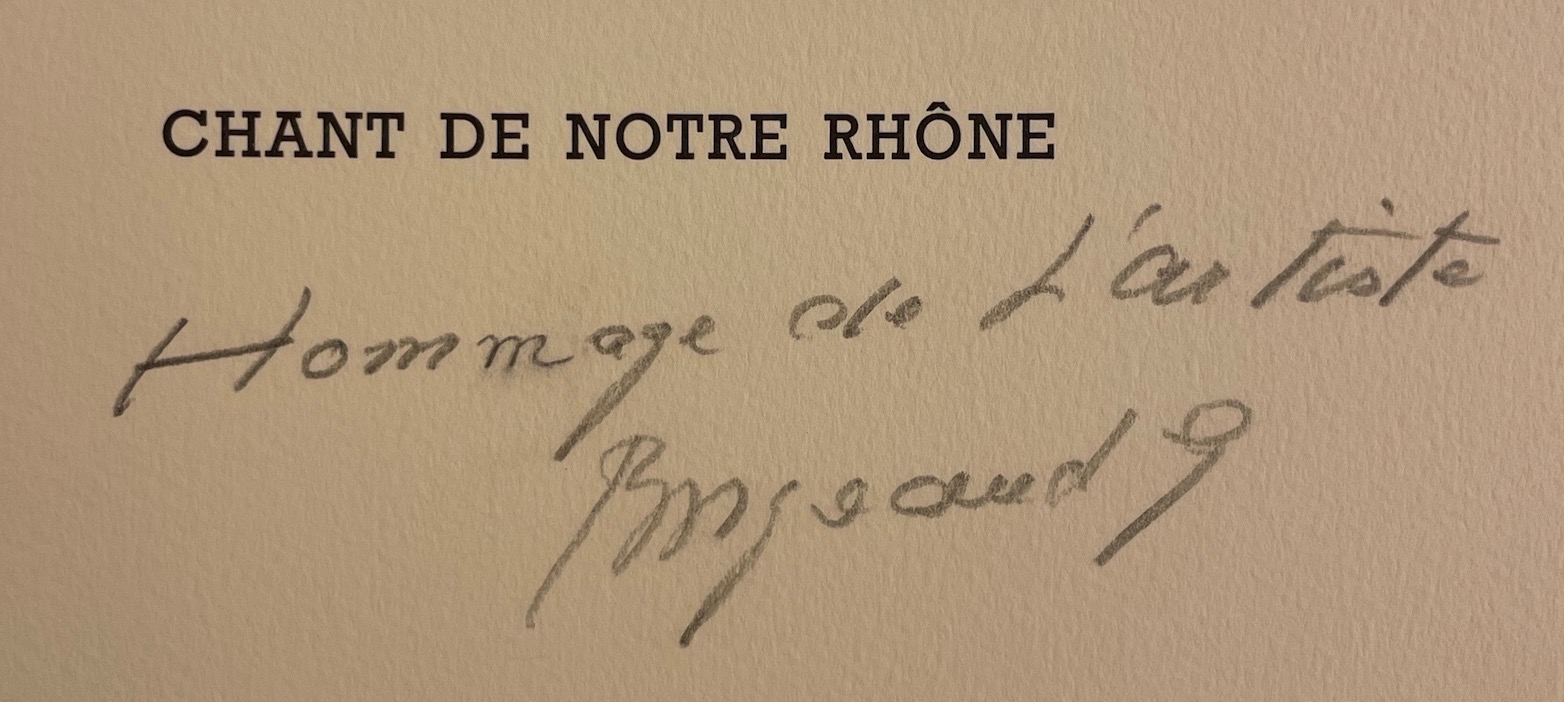 CHANT DE NOTRE RHÔNE
Hommage de L'artiste
Borgeaud G